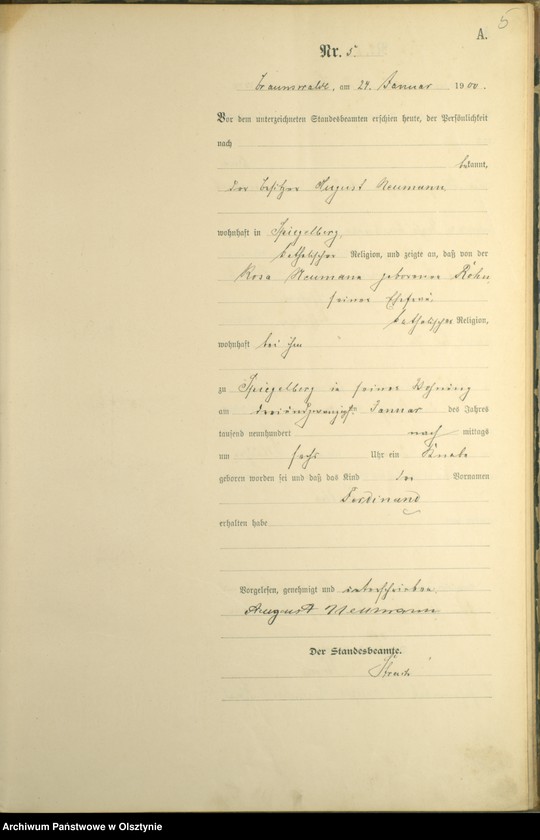 5
A.
Nr. 5.
Braunswalde, am 24. Januar 1900.
Vor dem unterzeichneten Standesbeamten erschien heute, der Persönlichkeit
nach
bekannt,
der Besitzer August Neumann
wohnhaft in Spiegelberg,
katholischer Religion, und zeigte an, daß von der
Rosa Neumann geborenen Röhn
seiner Ehefrau
katholischer Religion,
wohnhaft bei ihm
zu Spiegelberg in seiner Wohnung
am dreiundzwanzigsten Januar des Jahres
tausend neunhundert nach mittags
um sechs Uhr ein Knabe
geboren worden sei und daß das Kind den Vornamen
Ferdinand
erhalten habe
Vorgelesen, genehmigt und unterschrieben.
August Neumann
Der Standesbeamte.
Archiwum Państwowe w Olsztynie